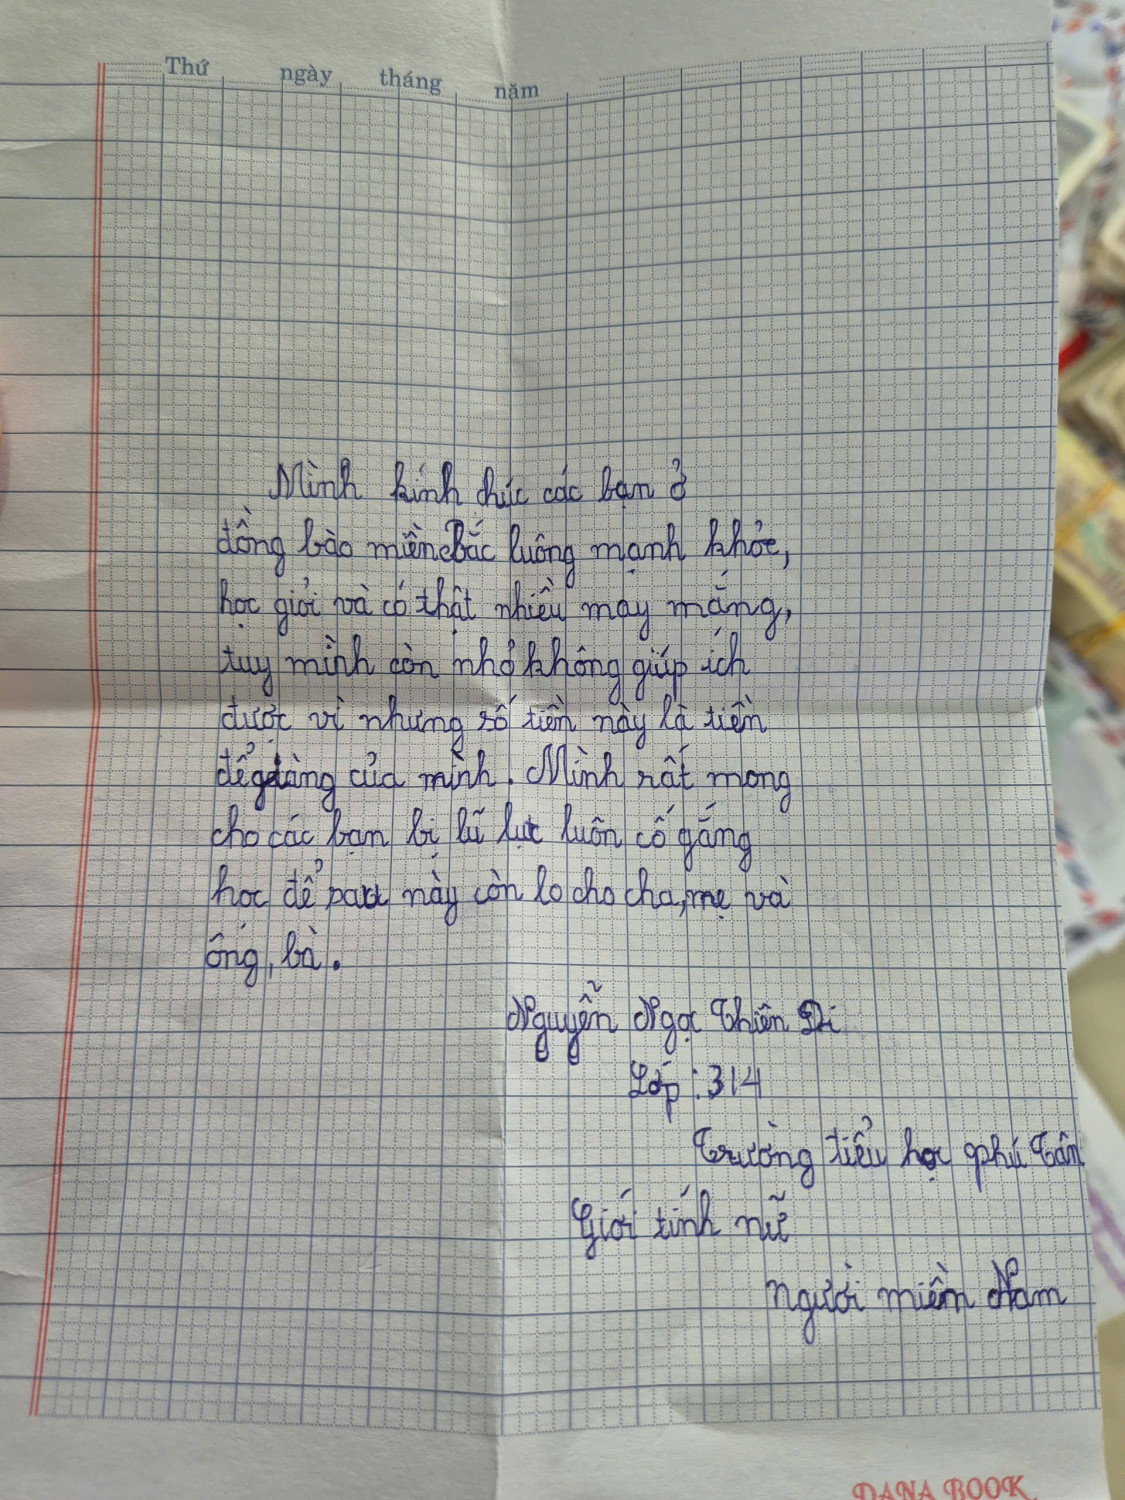 Thứ ngày tháng năm
Mình kính chúc các bạn ở
đồng bào miền Bắc luông mạnh khỏe,
học giỏi và có thật nhiều may mắng,
tuy mình còn nhỏ không giúp ích
được vì nhưng số tiền này là tiền
để gdàng của mình. Mình rất mong
cho các bạn bị lũ lụt luôn cố gắng
học để này còn lo cho cha, mẹ và
ông, bà.
Nguyễn Ngọc Thiên Di
Lớp : 314
Trường tiểu học phú Tân
Giới tính nữ
người miềm Nam
DANA BOOK